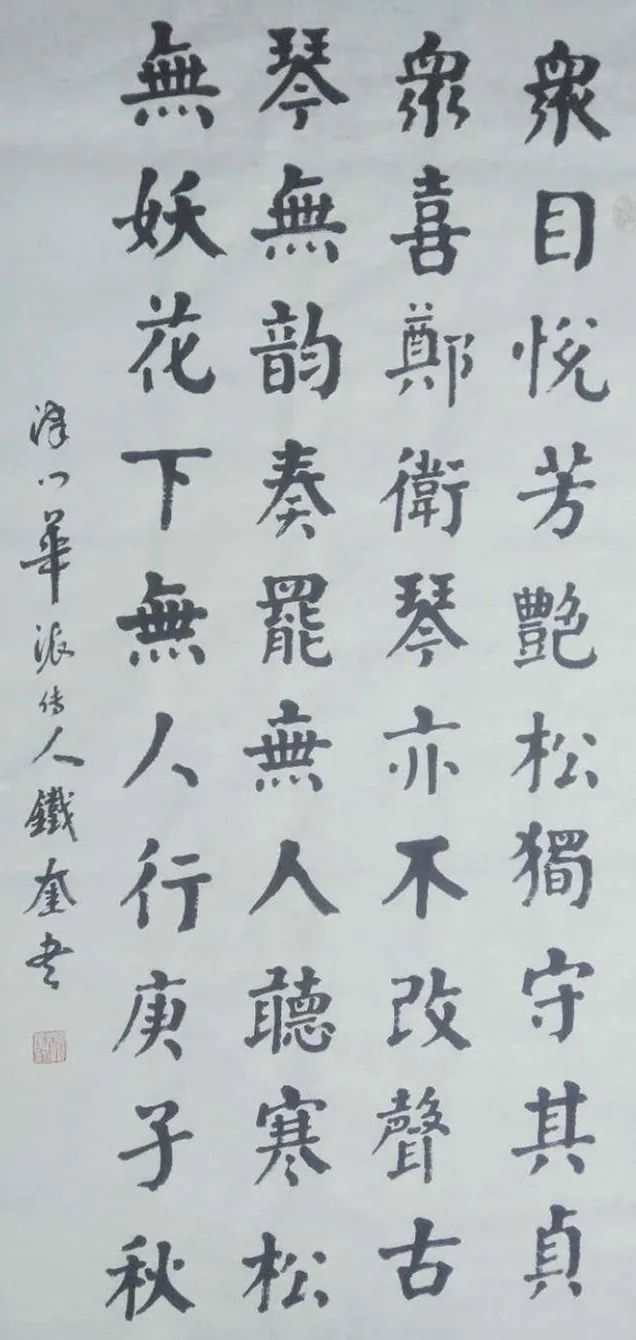 衆目悅芳艷松獨守其貞
衆喜鄭衛琴亦不改聲古
琴無韵奏罷無人聽寒松
無妖花下無人行庚子秋
津門華派传人鐵奎书